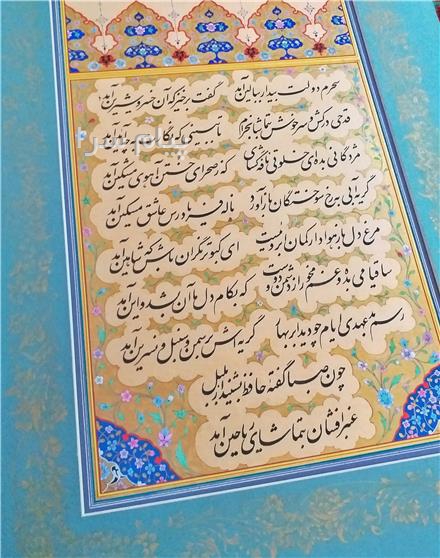 سحرم دولت بیدار ببالین آمد گفت برخیز که آن خسرو شیرین آمد
قدحی درکش و سرخوش بتماشا بخرام تا ببینی که آمد
مژدگانی بده ای خلوتی نافه گشای که ز صحرای ختن آهوی مشکین آمد
گریه آبی به رخ سوختگان بازآورد ناله فریادرس عاشق مسکین آمد
مرغ دل باز هوادار کمان ابروئیست ای کبوتر نگران باش که شاهین آمد
ساقیا می بده و غم مخور از دشمن و دوست که بکام دل ما آن بشد و این آمد
رسم بدعهدی ایام چو دید ابر بهار گریه اش بر سمن و سنبل و نسرین آمد
چون صبا گفته حافظ بشنید از بلبل
عنبرافشان بتماشای ریاحین آمد